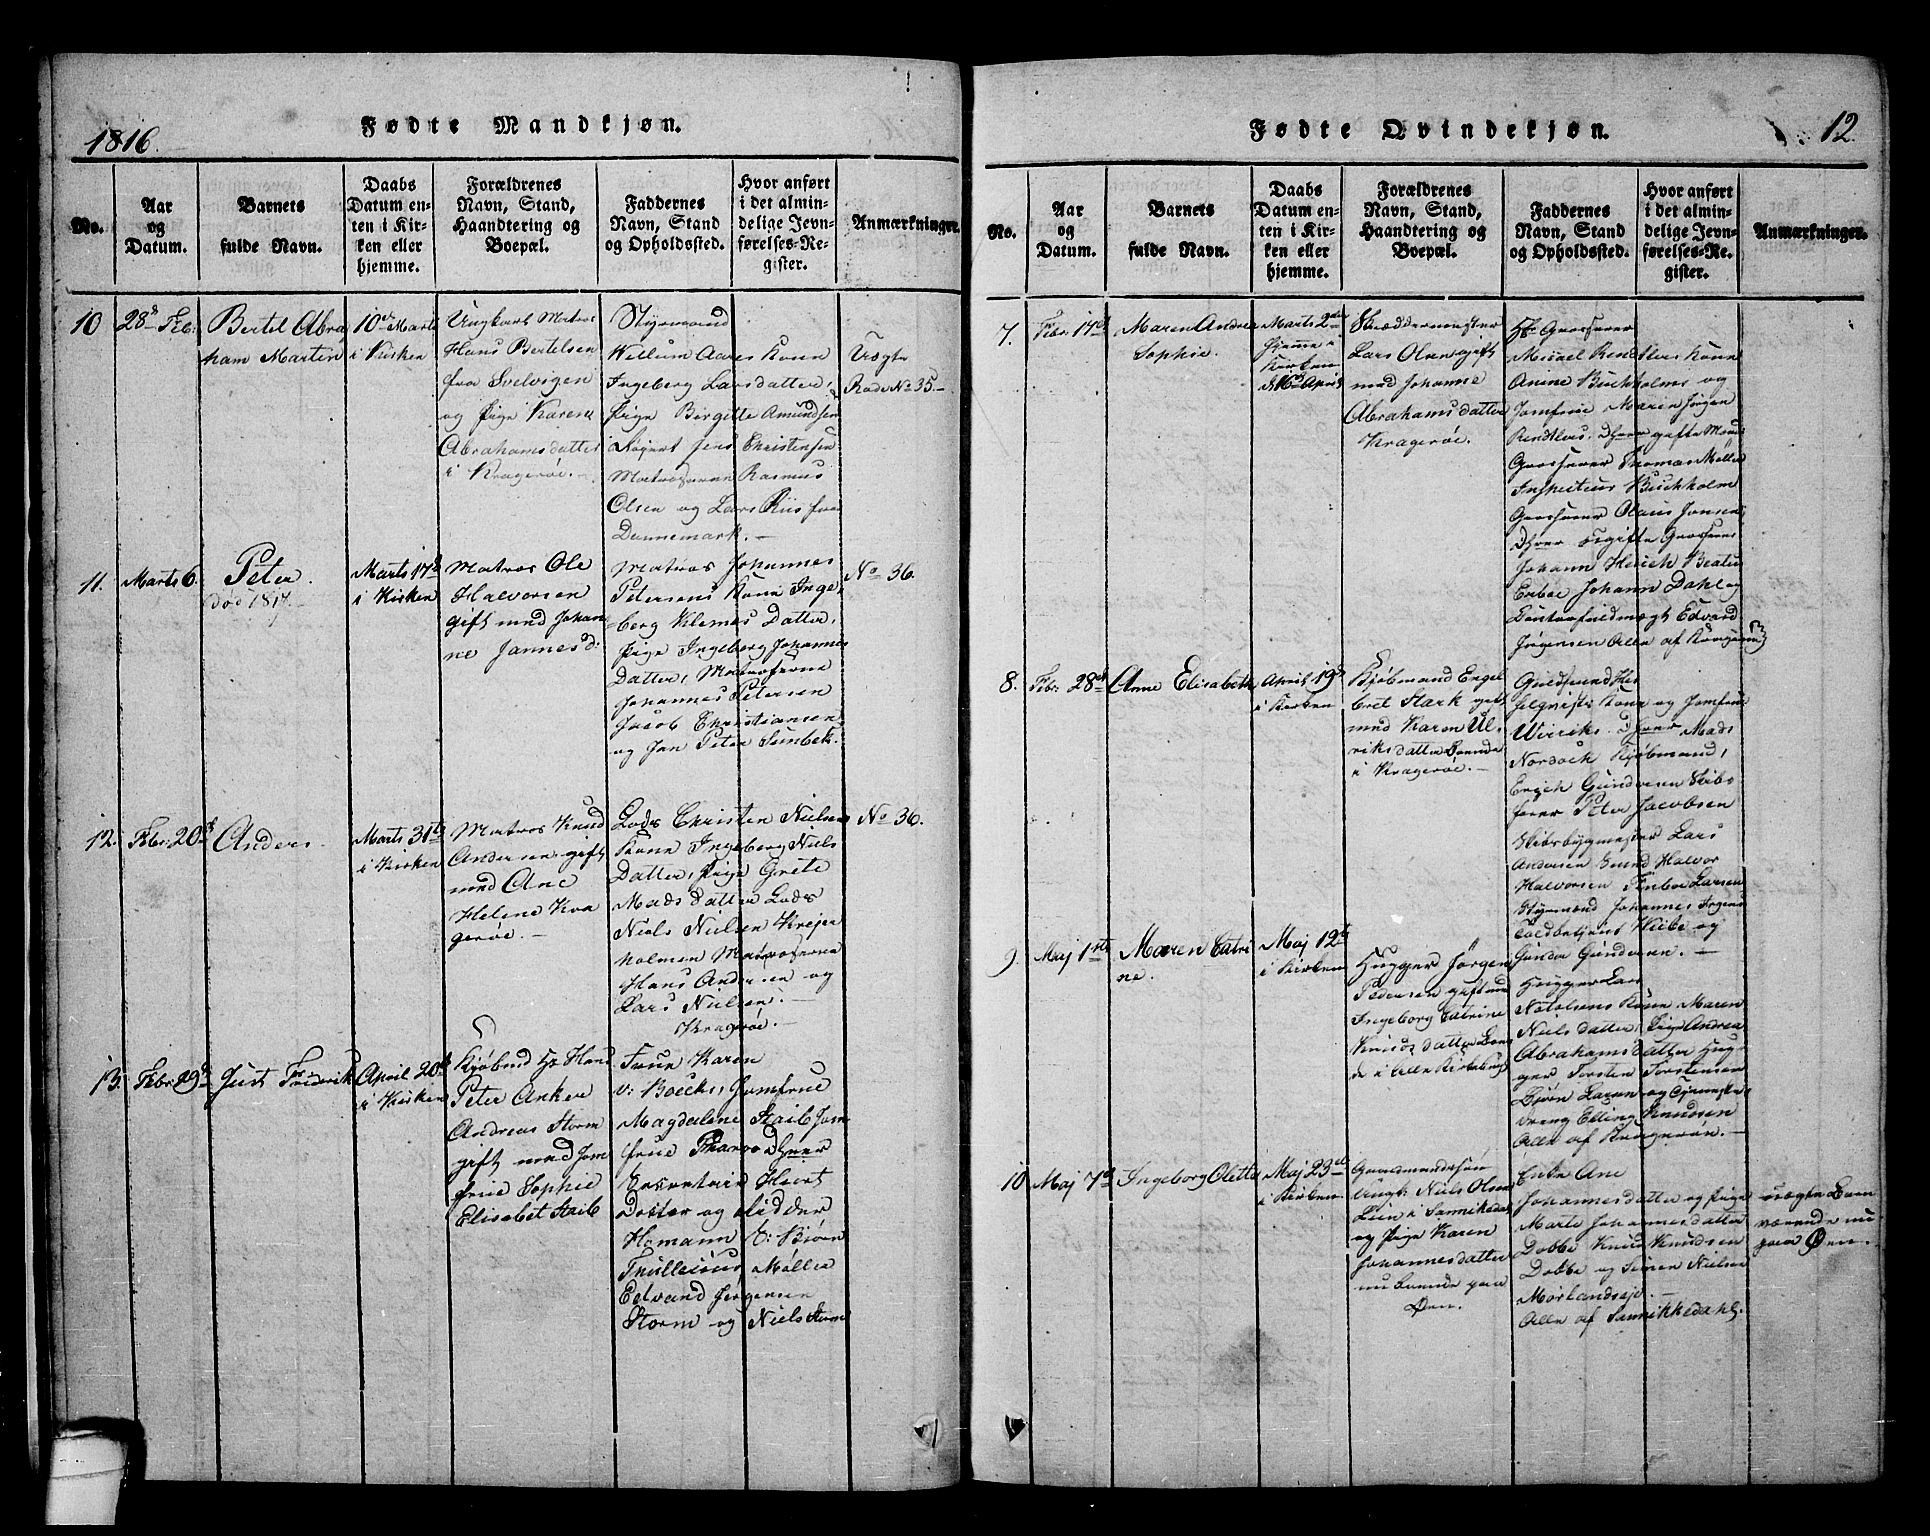 1816.
Fødte Mandkjøn.
No.
Aar
og
Datum.
Barnets
fulde Navn.
Daabs
Datum en-
ten i Kir-
ken eller
hjemme.
Forældrenes
Navn, Stand,
Haandtering og
Boepæl.
Faddernes
Navn, Stand
og Opholdssted.
Hvor anført
i det almin-
delige Jevn-
førelses-Re-
gister.
Anmærkninger.
10
28d Feb:
Bertel Abra
ham Martin
10de Marts
i Kirken
Ungkarl Matros
Hans Bertelsen
fra Svelvigen
og Pige Karen
Abrahamsdatter
i Kragerøe.
Styrmand
Willum Aares Kone
Ingeberg Larsdatter,
Pige Birgitte Amundsen
Jens Christensen
Matroserne Rasmus
Olsen og Lars Riis fra
Dannemark.
Uægte
Rode No 35
11.
Marts 6.
Peter.
død 1817.
Marts 17d
i Kirken
Matros Ole
Halvorsen
gift med Johan
ne Jannesd:
Matros Johannes
Petersens Kone Inge
berg Klemes Datter,
Pige Ingeberg Johannes
Datter, Matroserne
Johannes Petersen
Jacob Christiansen
og Jan Peter Sunbek.
No 36.
12.
Feb: 20d
Anders
Marts 31te
i Kirken
Matros Knud
Andersen gift
med Ane
Helene Kra
gerøe.
Lods Christen Nielsens
Kone Ingeberg Niels
Datter, Pige Grete
Mads datter Lods
Niels Nielsen Krejer
holmen Matroserne
Hans Andersen og
Lars Nielsen.
Kragerøe.
No 36.
13.
Feb: 29d
Just Fredrik
April 20d
i Kirken
Kjøbmd Hr Hans
Peter Anker
Andreas Storm
gift med Jom
frue Sophie
Elisabet Staib
Frue Karen
v: Boecks, Jomfrue
Magdalene Staib Jom
frue Dhrer
Hiort
og Ridder
Homann v: Biørn
Møller
Edvard Jørgensen
Storm og Niels Storm
Fødte Qvindekjøn.
12.
No.
Aar
og
Datum.
Barnets
fulde Navn.
Daabs
Datum en-
ten i Kir-
ken eller
hjemme.
Forældrenes
Navn, Stand,
Haandtering og
Boepæl.
Faddernes
Navn, Stand
og Opholdssted.
Hvor anført
i det almin-
delige Jevn-
førelses-Re-
gister.
Anmærkninger.
7.
Febr. 17d
Maren Andrea
Sophie.
Marts 2den
hjemme i
Kirken
d 16d April
Skræddermester
Lars Olsen gift
med Johanne
Abrahamsdatter
Kragerøe.
Hr Grosserer
Kone
Anine Buchholmes og
Jomfrue Maren Jørgen
Dhrer gifte Mænd
Grosserer Thomas Møller
Inspecteur Buchholm
Grosserer Claus Jensen,
Dhrer ugifte Grosserer
Johann
Johann Dahl og
Edvard
Jørgensen Alle af
8.
Febr: 28d
Anne Elisabeth
April 19d
i Kirken
Kjøbmand Engel
bret Stark gift
med Karen Ul,
riks datter boende
i Kragerøe.
Guldsmed
Kone og Jomfrue
Dhrer Mads
Kjøbmand,
Erich Gundersen Skibs
fører Peter Jacobsen
Skibsbygmester Lars
Andersen Svend Halvor
Halvorsen Larsen
Styrmand Johannes
Toldbetjent Wiebe og
Gundersen.
9.
Maj 1ste
Maren Catri
ne.
Maj 12te
i Kirken
Hugger Jørgen
Pedersen gift med
Ingeborg Catrine
Knuds datter boen
de i Alle Kirkebug
Hugger Lars
Natalsens Kone Maren
Niels datter, Pige Andrea
Abrahamsdatter Hug
ger Torsten Torstensen
Bjørn Larsen og Tjeneste,
dreng Elling Knudsen
Alle af Kragerøen.
10
Maj 7d
Ingeborg Olette
Maj 23de
i Kirken
Gaardmandssøn
Ungk: Niels Olsen
Lien i Sannikedal
og Pige Karen
Johannesdatter
nu boende paa
Øen.
Enke Ane
Johannesdatter og Pige
Marte Johannesdatter
Dobbe Knud Knudsen
Dobbe og Simen Nielsen
Mørlandseje.
Alle af Sannikkedahl.
uægte Barn
værende nu
paa Øen.